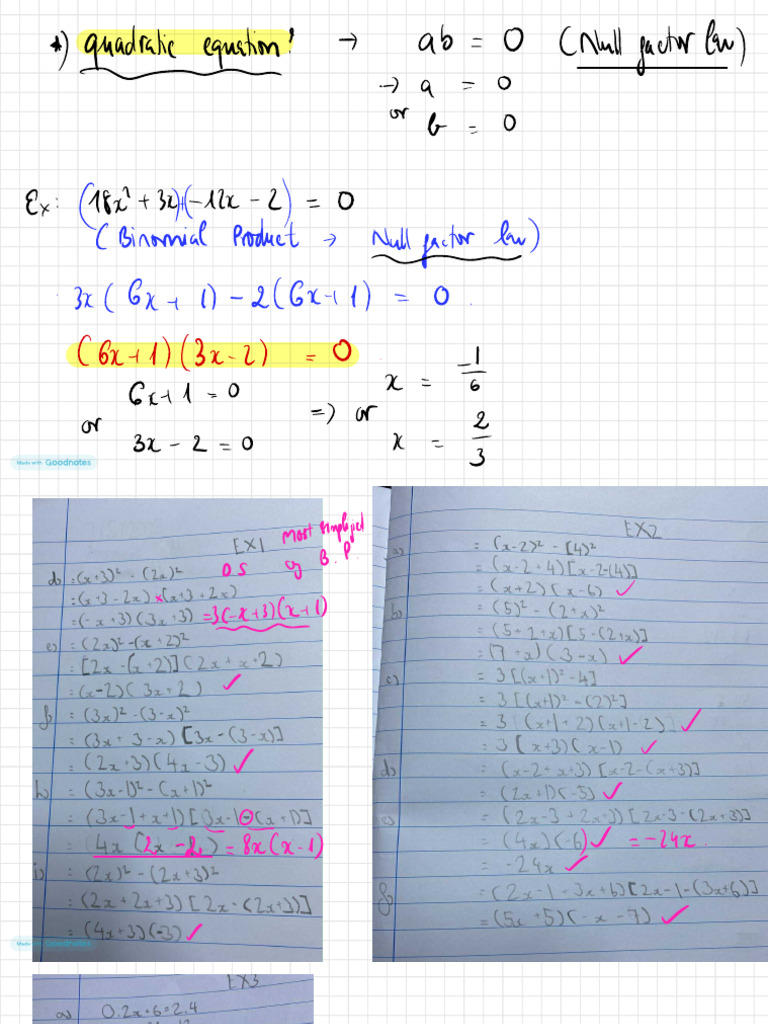 *) quadratic equation: → ab = 0 (Null factor law)
→ a = 0
or b = 0
Ex: (18x² + 3x)+(-12x - 2) = 0
(Binomial Product → Null factor law)
3x(6x + 1) - 2(6x+1) = 0
(6x+1)(3x-2) = 0
6x+1 = 0
or
3x - 2 = 0
=> x = -1/6
or
x = 2/3
Made with Goodnotes
EX1
most simplified
DS of B.P.
d) = (x+3)² - (2x)²
= (x+3-2x) × (x+3+2x)
= (-x+3)(3x+3) = 3(-x+3)(x+1)
e) = (2x)² - (x+2)²
= [2x-(x+2)](2x+x+2)
= (x-2)(3x+2) ✓
f) = (3x)² - (3-x)²
= (3x+3-x)[3x-(3-x)]
= (2x+3)(4x-3) ✓
h) = (3x-1)² - (x+1)²
= (3x-1+x+1)[3x-1-(x+1)]
= (4x(2x-2) = 8x(x-1)
i) = (2x)² - (2x+3)²
= (2x+2x+3)[2x-(2x+3)]
= (4x+3)(-3) ✓
Made with Goodnotes
EX2
a) = (x-2)² - [4)²
= (x-2+4)[x-2-(4)]
= (x+2)(x-6) ✓
b) = (5)² - (2+x)²
= (5+2+x)[5-(2+x)]
= (7+x)(3-x) ✓
c) = 3[(x+1)²-4]
= 3[(x+1)²-(2)²]
= 3(x+1+2)(x+1-2) ✓
= 3(x+3)(x-1) ✓
d) = (x-2+x+3)[x-2-(x+3)]
= (2x+1)(-5) ✓
e) = (2x-3+2x+3)[2x-3-(2x+3)]
= (4x)(-6) ✓ = -24x
= -24x ✓
f) = (2x-1+3x+6)[2x-1-(3x+6)]
= (5x+5)(-x-7) ✓
EX3
a) 0.2x+6=2.4